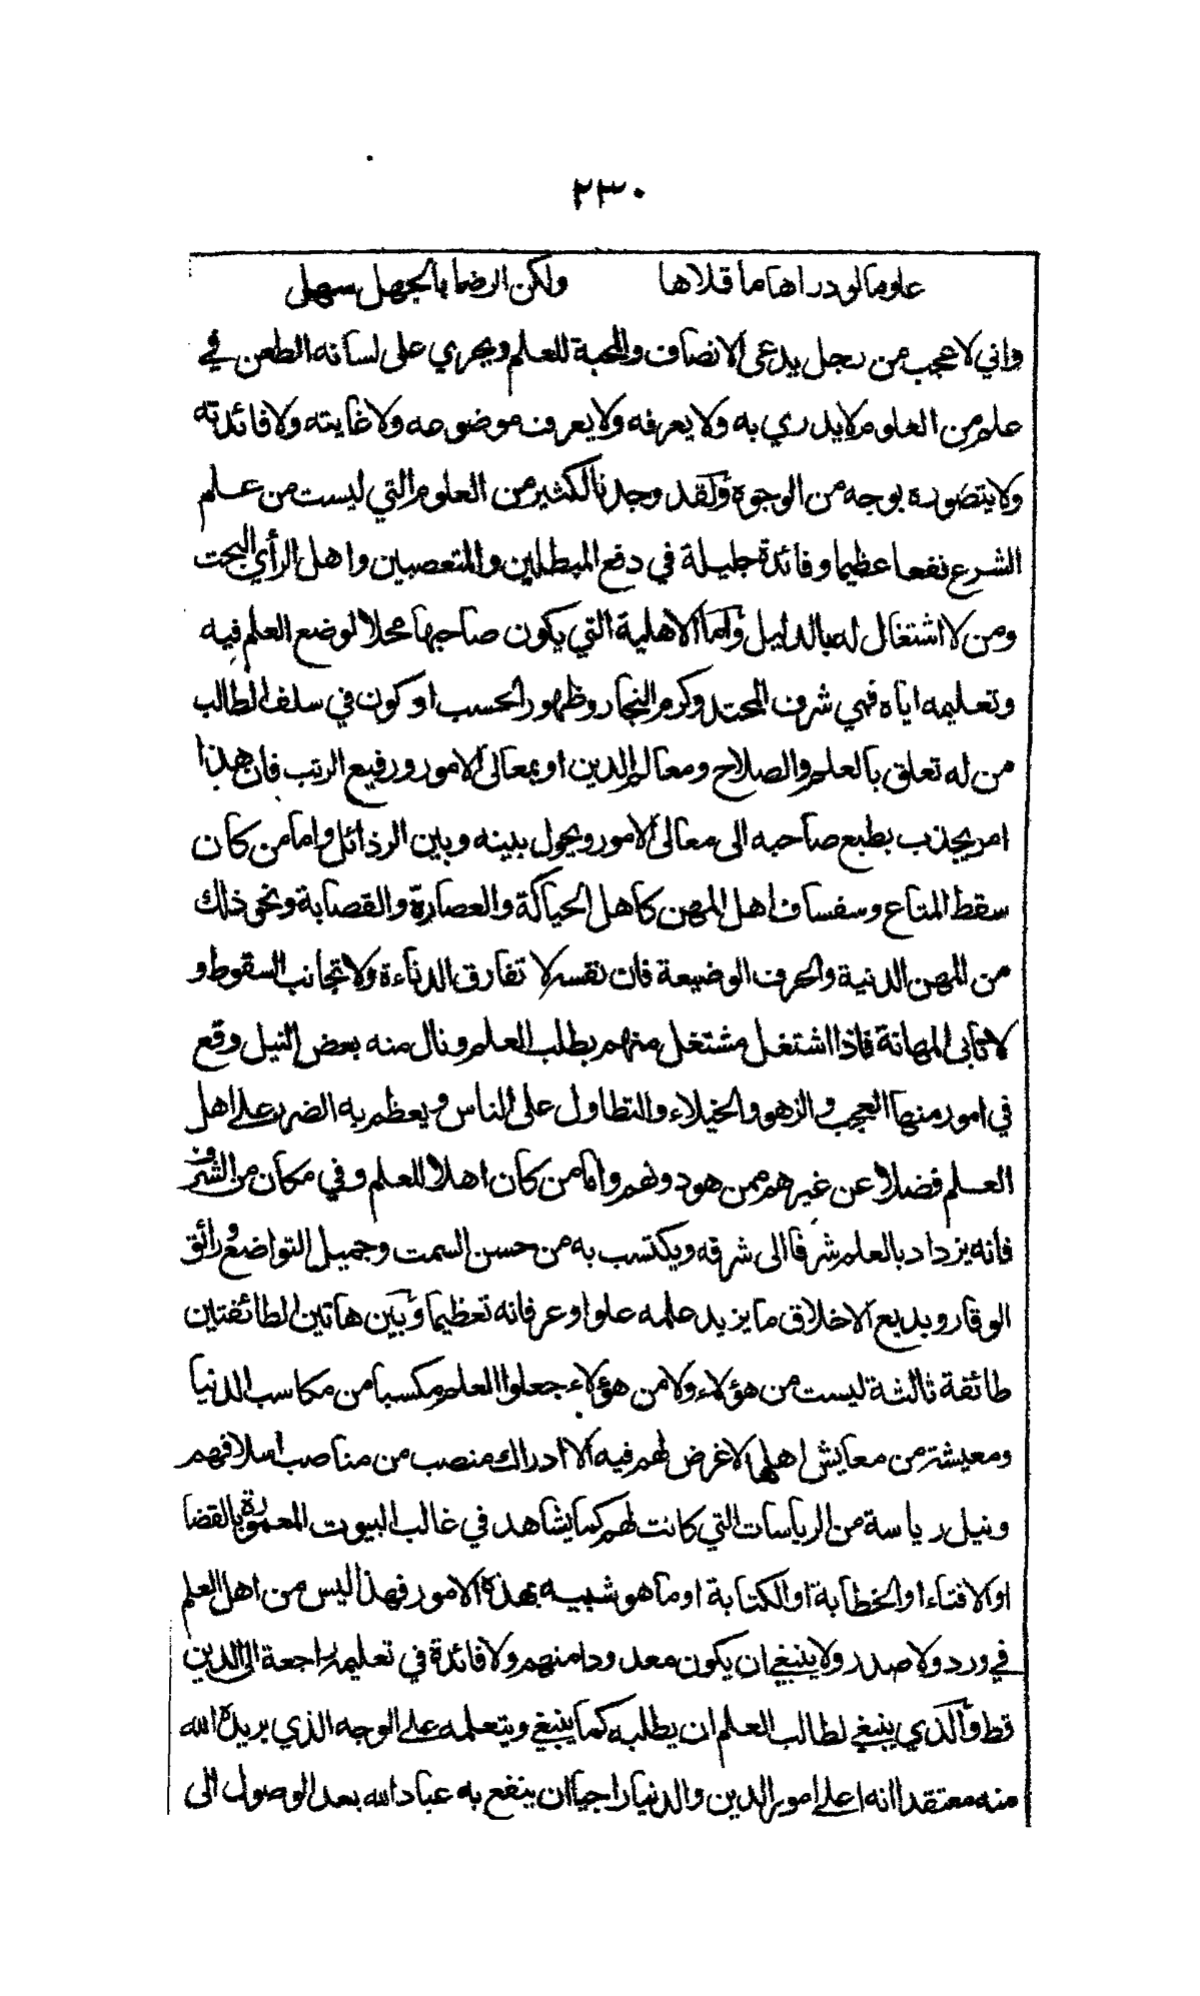 ٢٣٠
علوما لو دراها ما قلاها ولكن الرضا بالجهل سهل
واني لاعجب من رجل يدعى الانصاف والمحبة للعلم ويجري على لسانه الطعن في
علم من العلوم لا يدري به ولا يعرفه ولا يعرف موضوعه ولا غايته ولا فائدته
ولا يتصوره بوجه من الوجوه ولقد وجدنا لكثير من العلوم التي ليست من علم
الشرع نفعا عظيما وفائدة جليلة في دفع المبطلين والمتعصبين واهل الرأي البحت
ومن لا اشتغال له بالدليل واما الاهلية التي يكون صاحبها محلا لوضع العلم فيه
وتعليمه اياه فهي شرف المحتد وكرم النجار وظهور الحسب او كون في سلف الطالب
من له تعلق بالعلم والصلاح ومعالم الدين او بمعالى الامور ورفيع الرتب فان هذا
امر يجذب بطبع صاحبه الى معالى الامور ويحول بينه وبين الرذائل واما من كان
سقط المتاع وسفساف اهل المهن كاهل الحياكة والعصارة والقصابة ونحو ذلك
من المهن الدنية والحرف الوضيعة فان نفسه لا تفارق الدناءة ولا تجانب السقوط و
لا تأبى المهانة فاذا اشتغل مشتغل منهم بطلب العلم ونال منه بعض النيل وقع
في امور منها العجب والزهو والخيلاء والتطاول على الناس ويعظم به الضرر على اهل
العلم فضلا عن غيرهم ممن هو دونهم واما من كان اهلا للعلم وفي مكان من الشرف
فانه يزداد بالعلم شرفا الى شرفه ويكتسب به من حسن السمت وجميل التواضع ورائق
الوقار وبديع الاخلاق ما يزيد علمه علوا وعرفانه تعظيما وبين هاتين الطائفتين
طائفة ثالثة ليست من هؤلاء ولا من هؤلاء جعلوا العلم مكسبا من مكاسب الدنيا
ومعيشة من معايش اهلها لا غرض لهم فيه الا ادراك منصب من مناصب اسلافهم
ونيل رياسة من الرياسات التي كانت لهم كما يشاهد في غالب البيوت المعمورة بالقضا
او الافتاء او الخطابة او الكتابة او ما هو شبيه بهذه الامور فهذا ليس من اهل العلم
في ورد ولا صدر ولا ينبغي ان يكون معدودا منهم ولا فائدة في تعليمه راجعة الى الدين
قط والذي ينبغي لطالب العلم ان يطلبه كما ينبغي ويتعلمه على الوجه الذي يريده الله
منه معتقدا انه اعلى امور الدين والدنيا راجيا ان ينفع به عباد الله بعد الوصول الى